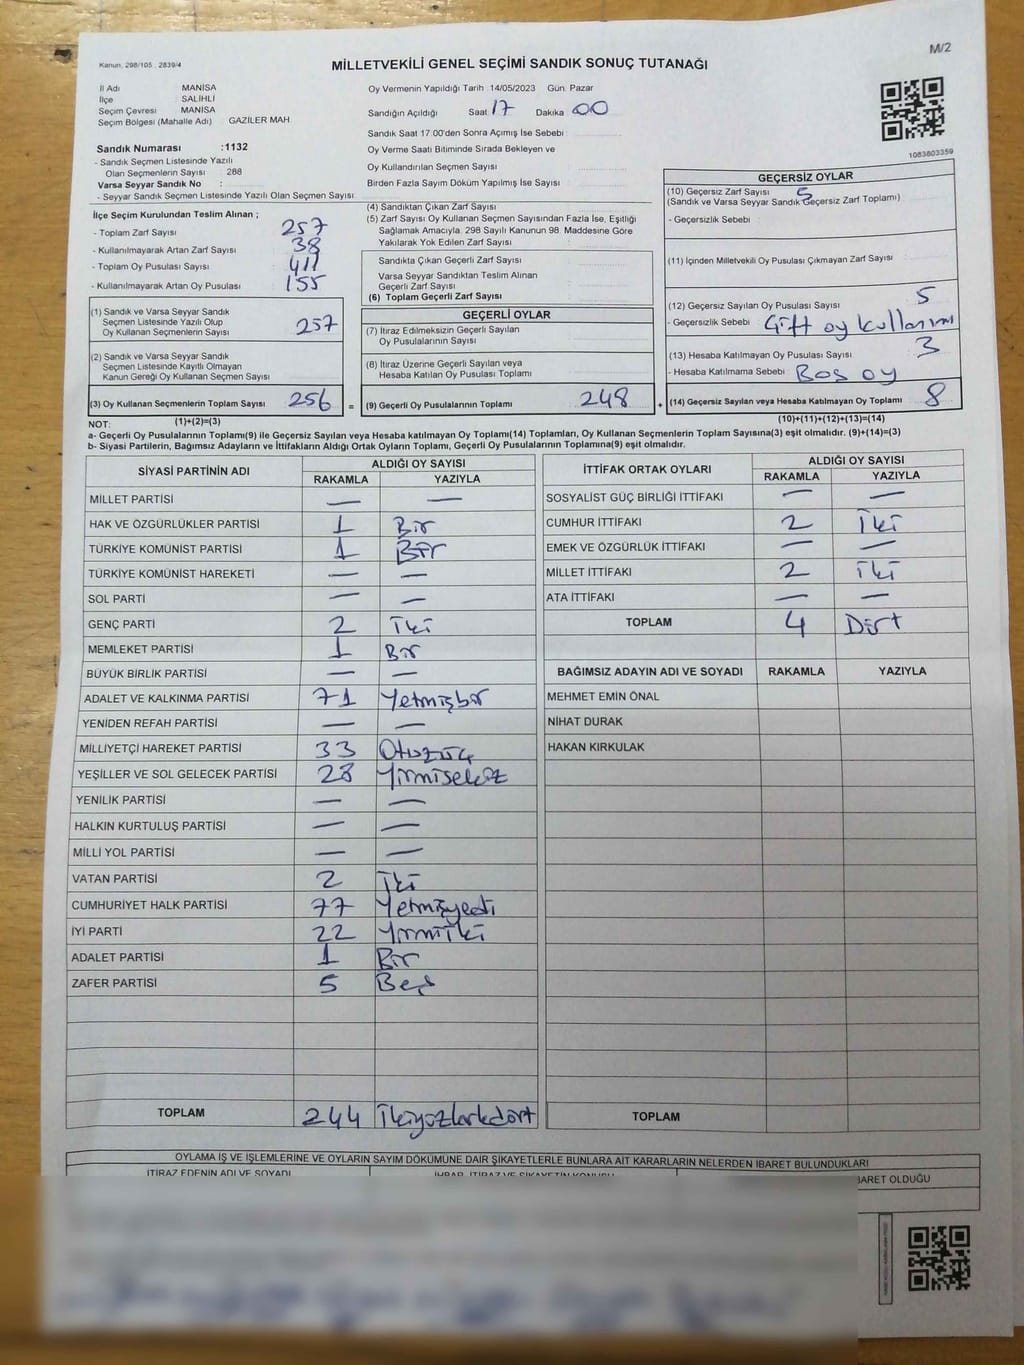 M/2
Kanun, 298/105 , 2839/4
MİLLETVEKİLİ GENEL SEÇİMİ SANDIK SONUÇ TUTANAĞI
İl Adı MANİSA
İlçe SALİHLİ
Seçim Çevresi MANİSA
Seçim Bölgesi (Mahalle Adı) GAZİLER MAH.
Sandık Numarası :1132
- Sandık Seçmen Listesinde Yazılı
Olan Seçmenlerin Sayısı 288
Varsa Seyyar Sandık No :
- Seyyar Sandık Seçmen Listesinde Yazılı Olan Seçmen Sayısı
Oy Vermenin Yapıldığı Tarih 14/05/2023 Gün. Pazar
Sandığın Açıldığı Saat 17 Dakika 00
Sandık Saat 17.00'den Sonra Açımış İse Sebebi
Oy Verme Saati Bitiminde Sırada Bekleyen ve
Oy Kullandırılan Seçmen Sayısı
Birden Fazla Sayım Döküm Yapılmış İse Sayısı
1083803359
İlçe Seçim Kurulundan Teslim Alınan ;
- Toplam Zarf Sayısı 257
- Kullanılmayarak Artan Zarf Sayısı 38
- Toplam Oy Pusulası Sayısı 411
- Kullanılmayarak Artan Oy Pusulası 155
(1) Sandık ve Varsa Seyyar Sandık
Seçmen Listesinde Yazılı Olup
Oy Kullanan Seçmenlerin Sayısı 257
(2) Sandık ve Varsa Seyyar Sandık
Seçmen Listesinde Kayıtlı Olmayan
Kanun Gereği Oy Kullanan Seçmen Sayısı
(3) Oy Kullanan Seçmenlerin Toplam Sayısı 256 =
(1)+(2)=(3)
(4) Sandıktan Çıkan Zarf Sayısı
(5) Zarf Sayısı Oy Kullanan Seçmen Sayısından Fazla İse, Eşitliği
Sağlamak Amacıyla, 298 Sayılı Kanunun 98. Maddesine Göre
Yakılarak Yok Edilen Zarf Sayısı
Sandıkta Çıkan Geçerli Zarf Sayısı
Varsa Seyyar Sandıktan Teslim Alınan
Geçerli Zarf Sayısı
(6) Toplam Geçerli Zarf Sayısı
GEÇERLİ OYLAR
(7) İtiraz Edilmeksizin Geçerli Sayılan
Oy Pusulalarının Sayısı
(8) İtiraz Üzerine Geçerli Sayılan veya
Hesaba Katılan Oy Pusulası Toplamı
(9) Geçerli Oy Pusulalarının Toplamı 248 +
GEÇERSİZ OYLAR
(10) Geçersiz Zarf Sayısı 5
(Sandık ve Varsa Seyyar Sandık Geçersiz Zarf Toplamı)
- Geçersizlik Sebebi
(11) İçinden Milletvekili Oy Pusulası Çıkmayan Zarf Sayısı
(12) Geçersiz Sayılan Oy Pusulası Sayısı 5
- Geçersizlik Sebebi Çift oy kullanımı
(13) Hesaba Katılmayan Oy Pusulası Sayısı 3
- Hesaba Katılmama Sebebi Boş oy
(14) Geçersiz Sayılan veya Hesaba Katılmayan Oy Toplamı 8
(10)+(11)+(12)+(13)=(14)
NOT:
a- Geçerli Oy Pusulalarının Toplamı(9) ile Geçersiz Sayılan veya Hesaba katılmayan Oy Toplamı(14) Toplamları, Oy Kullanan Seçmenlerin Toplam Sayısına(3) eşit olmalıdır. (9)+(14)=(3)
b- Siyasi Partilerin, Bağımsız Adayların ve İttifakların Aldığı Ortak Oyların Toplamı, Geçerli Oy Pusulalarının Toplamına(9) eşit olmalıdır.
SİYASİ PARTİNİN ADI ALDIĞI OY SAYISI
RAKAMLA YAZIYLA
MİLLET PARTİSİ — —
HAK VE ÖZGÜRLÜKLER PARTİSİ 1 Bir
TÜRKİYE KOMÜNİST PARTİSİ 1 Bir
TÜRKİYE KOMÜNİST HAREKETİ — —
SOL PARTİ — —
GENÇ PARTİ 2 İki
MEMLEKET PARTİSİ 1 Bir
BÜYÜK BİRLİK PARTİSİ — —
ADALET VE KALKINMA PARTİSİ 71 Yetmişbir
YENİDEN REFAH PARTİSİ — —
MİLLİYETÇİ HAREKET PARTİSİ 33 Otuzüç
YEŞİLLER VE SOL GELECEK PARTİSİ 28 Yirmisekiz
YENİLİK PARTİSİ — —
HALKIN KURTULUŞ PARTİSİ — —
MİLLİ YOL PARTİSİ — —
VATAN PARTİSİ 2 İki
CUMHURİYET HALK PARTİSİ 77 Yetmişyedi
İYİ PARTİ 22 Yirmiiki
ADALET PARTİSİ 1 Bir
ZAFER PARTİSİ 5 Beş
TOPLAM 244 İkiyüzkırkdört
İTTİFAK ORTAK OYLARI ALDIĞI OY SAYISI
RAKAMLA YAZIYLA
SOSYALİST GÜÇ BİRLİĞİ İTTİFAKI — —
CUMHUR İTTİFAKI 2 İki
EMEK VE ÖZGÜRLÜK İTTİFAKI — —
MİLLET İTTİFAKI 2 İki
ATA İTTİFAKI — —
TOPLAM 4 Dört
BAĞIMSIZ ADAYIN ADI VE SOYADI RAKAMLA YAZIYLA
MEHMET EMİN ÖNAL
NİHAT DURAK
HAKAN KIRKULAK
TOPLAM
OYLAMA İŞ VE İŞLEMLERİNE VE OYLARIN SAYIM DÖKÜMÜNE DAİR ŞİKAYETLERLE BUNLARA AİT KARARLARIN NELERDEN İBARET BULUNDUKLARI
İTİRAZ EDENİN ADI VE SOYADI İHBAR, İTİRAZ VE ŞİKAYETİN KONUSU BARET OLDUĞU